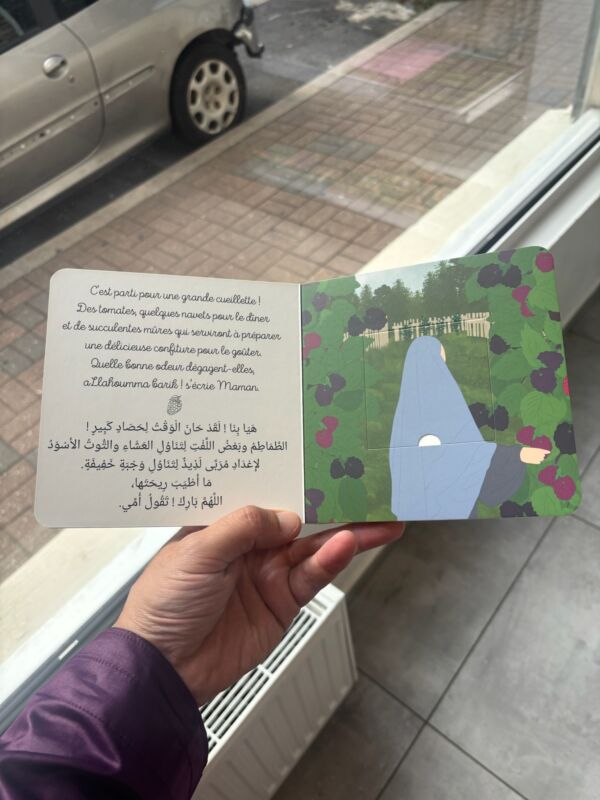 C'est parti pour une grande cueillette !
Des tomates, quelques navets pour le dîner
et de succulentes mûres qui serviront à préparer
une délicieuse confiture pour le goûter.
Quelle bonne odeur dégagent-elles,
aLlahoumma barik ! s'écrie Maman.
هَيَا بِنَا ! لَقَدْ حَانَ الْوَقْتُ لِحَصَادٍ كَبِيرٍ !
الطَّمَاطِمُ وبَعْضُ اللِّفْتِ لِتَنَاوُلِ العَشَاءِ والتُّوتُ الأَسْوَدُ
لإعْدَادِ مُرَبًّى لَذِيذٌ لِتَنَاوُلِ وَجَبَةٍ خَفِيفَةٍ.
مَا أَطْيَبَ رِيحَتَها،
اللَّهُمَّ بَارِكْ ! تَقُولُ أُمِّي.